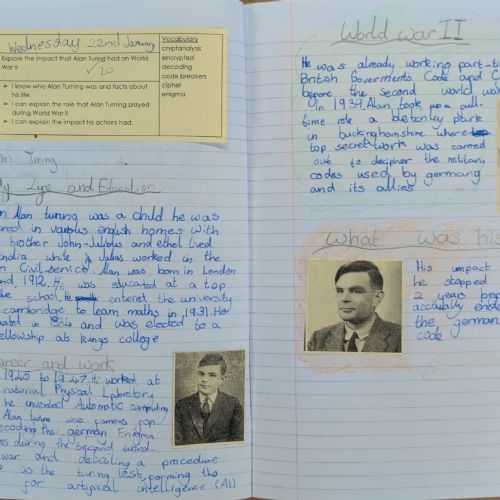 Wednesday 22nd January
Explore the impact that Alan Turing had on World War II
20
➤ I know who Alan Turning was and facts about his life.
➤ I can explain the role that Alan Turning played during World War II
➤ I can explain the impact his actions had.
Vocabulary
cryptanalysis
encrypted
decoding
code breakers
cipher
enigma
Turing
Life and Education
Alan turing was a child he was
in various english homes with
brother John
and ethel lived
india while Julius worked in the
Civil service. Alan was born in London
1912. He was educated at a top
school, he entered the university
cambridge to learn maths in 1931. He
and was elected to a
fellowship at kings college
career and work
1945 to 1947. He worked at
national Physical
he invented Automatic computing
Alan turing was famous for
decoding the german Enigma
during the second
war and detailing a procedure
as the turing test, forming the
for artificial intelligence (AI)
World War II
He was already working part-ti
British Goverments Code and C
before the second world war
In 1939, Alan took up a full-
time role a bletchley park
in buckinghamshire where
top secret work was carried
out to decipher the military
codes used by germany
and its allies
What was his
His impact
he stopped
2 years be
ende
the german
code